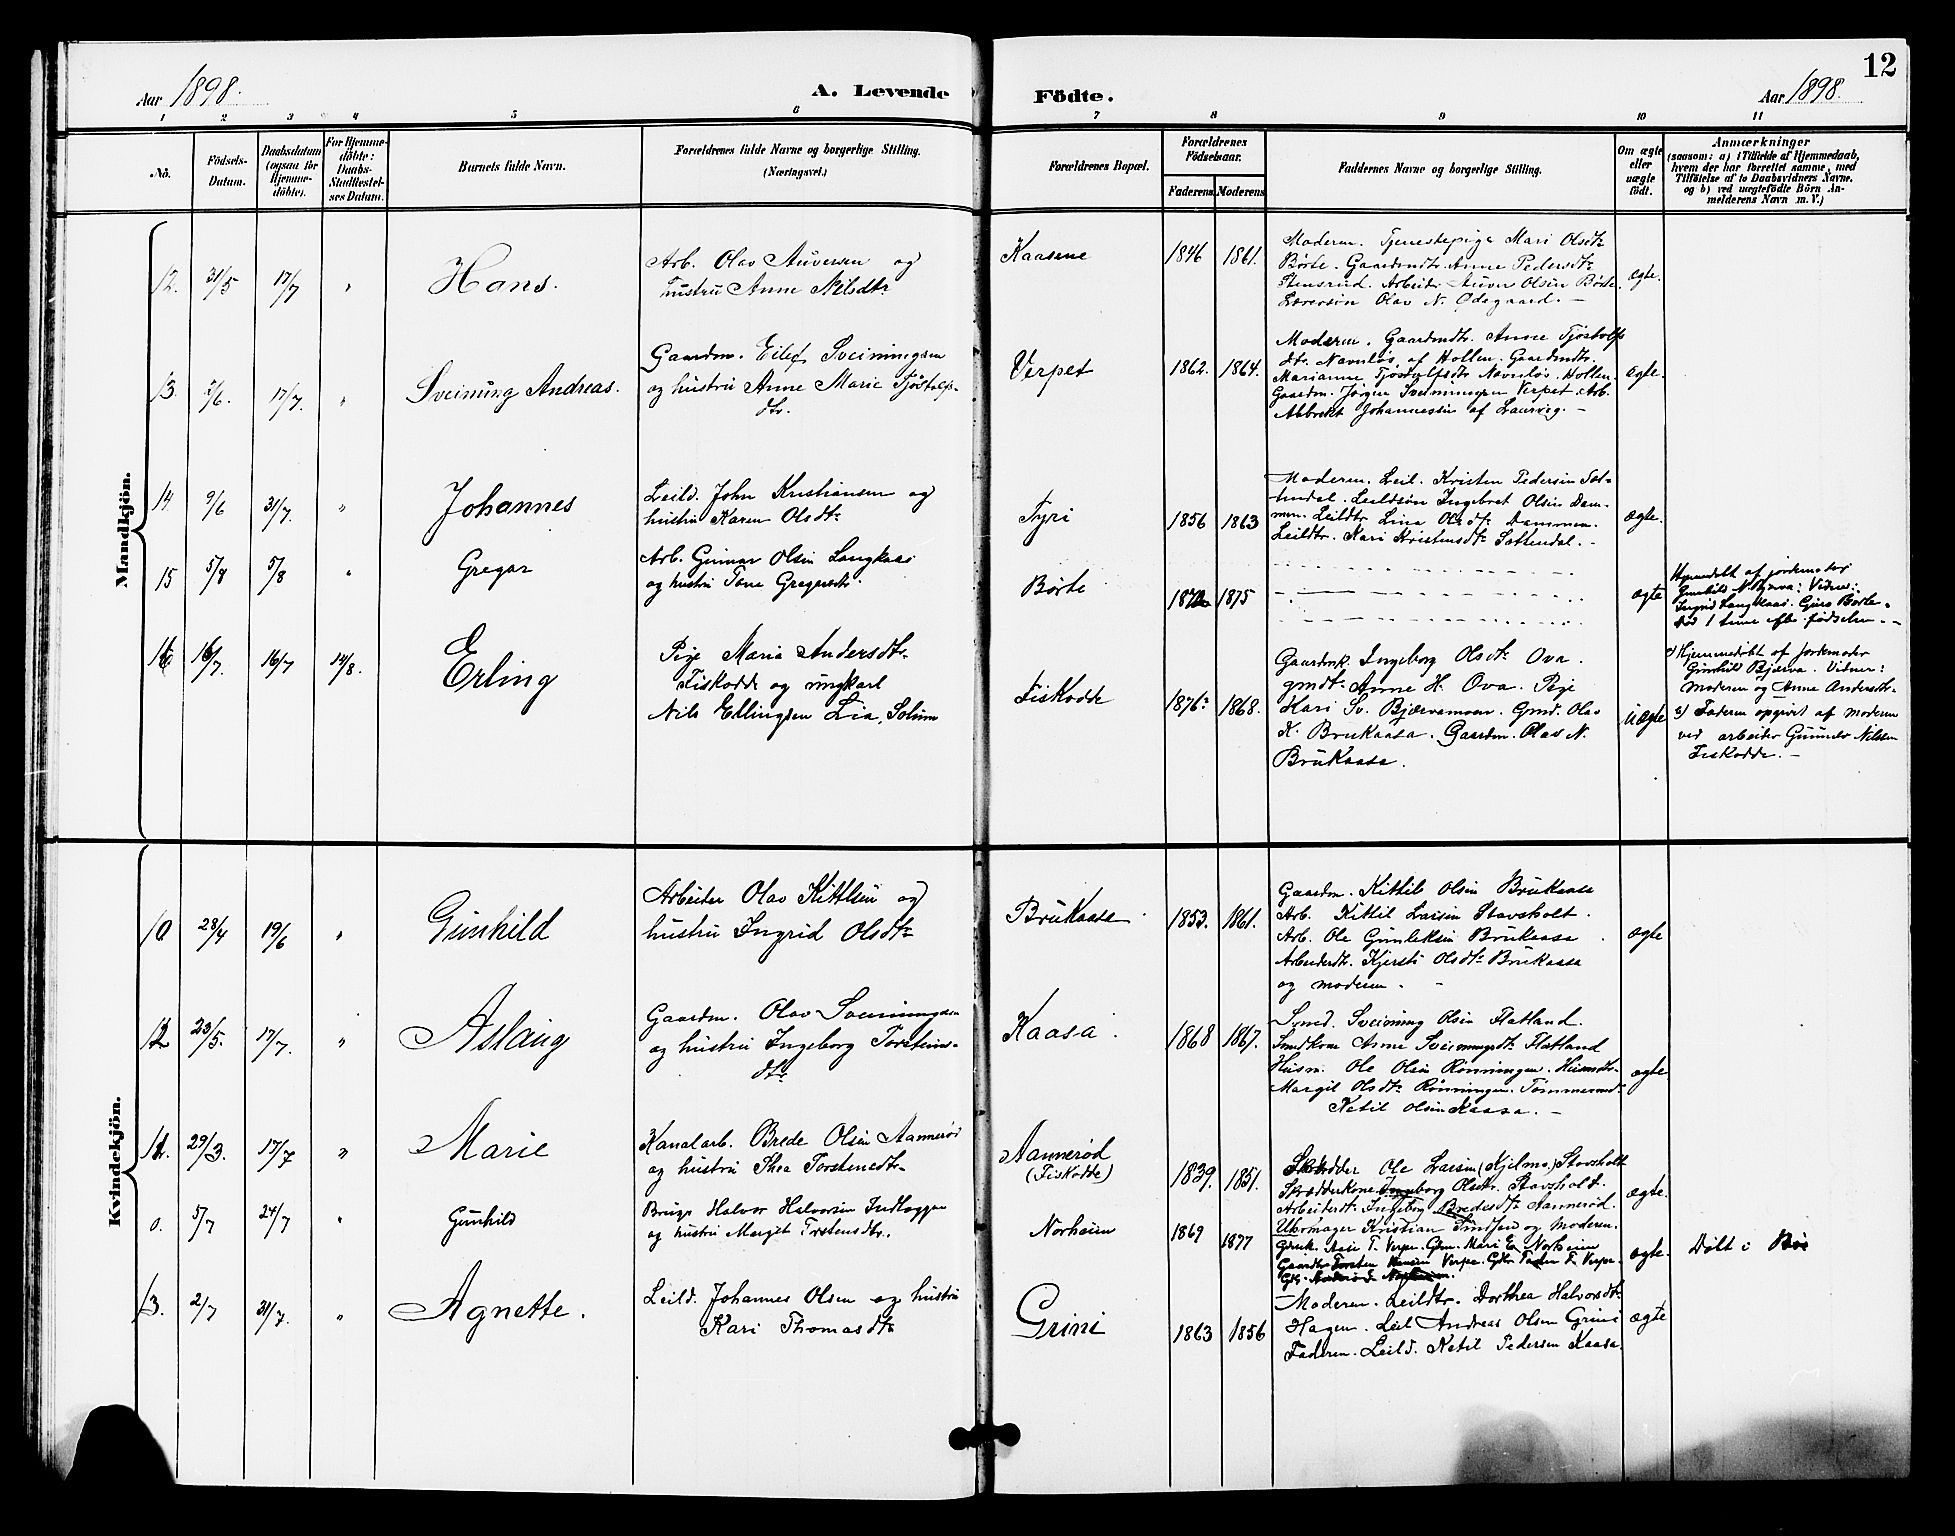 Aar 1898.
A. Levende
Födte.
Aar 1898.
12
1 2 3 4 5 6 7 8 9 10 11
No.
Födsels-Datum.
Daabsdatum (ogsaa for Hjemme-döbte).
For Hjemme-döbte: Daabs-Stadfæstel-ses Datum.
Barnets fulde Navn.
Forældrenes fulde Navne og borgerlige Stilling.
(Næringsvei.)
Forældrenes Bopæl.
Forældrenes Födselsaar.
Faderens. Moderens.
Faddernes Navne og borgerlige Stilling.
Om ægte eller uægte födt.
Anmærkninger
(saasom: a) i Tilfælde af Hjemmedaab,
hvem der har forrettet samme, med
Tilföielse af to Daabsvidners Navne,
og b) ved uægtefödte Börn An-
melderens Navn m. V.)
Mandkjön.
12. 31/5 17/7 "
Hans.
Arb. Olav Auversen og
hustru Anne Nilsdtr
Kaasene
1846 1861.
Moderen. Tjenestepige Mari Olsdtr
Börte. Gaardmdtr. Anne Pedersdtr
Stensrud. Arbeider Auver Olsen Börte.
Lærersön Olav N. Ödegaard. –
ægte.
13. 2/6. 17/7. "
Sveinung Andreas.
Gaardm. Eilef Sveinungsen
og hustru Anne Marie Tjöstolfs-
dtr.
Verpet
1862. 1864.
Moderen. Gaardmdtr. Anne Tjöstolfs
dtr. Navnlös af Hollen. Gaardmdtr.
Marianne Tjöstolfsdtr Navnlös. Hollen.
Gaardm. Jörgen Sveinungsen Verpet. Arb.
Johannessen af Laurvig. –
ægte.
14. 9/6 31/7. "
Johannes
Leild. John Kristiansen og
hustru Karen Olsdtr
Tyri
1856 1863
Moderen. Leil. Kristen Pedersen Sat-
tendal. Leildsön Ingebret Olsen Dam-
men. Leildtr. Lina Olsdtr Dammen.
Leildtr. Kari Kristensdtr Sattendal. –
ægte.
15 5/8 5/8 "
Gregar
Arb. Gunnar Olsen Langkaas
og hustru Tone Gregarsdtr.
Börte
1875
ægte
Hjemmedöbt af jordemoder
Gunhild N. Bjerva: Vidner:
Ingrid Langkaas. Gjuro Börte.
död 1 time efter födselen. –
16 16/7. 16/7 14/8.
Erling
Pige Maria Andersdtr.
Fiskodde og ungkarl
Nils Ellingsen Lia, Solum
Fiskodde
1876. 1868.
Gaardmk. Ingeborg Olsdtr Ova.
gmdtr Anne H. Ova. Pige
Kari Sv. Bjærvamoen. Gmd. Olav
K. Brukaasa. Gaardm. Olav N.
Brukaasa.
uægte
Hjemmedöbt af jordemoder
Gunhild Bjerva. Vidner:
moderen og Anne Andersdtr.
Faderen opgivet af moderen
ved arbeider Gunnar Nilsen
Fiskodde. –
Kvindekjön.
10 28/4 19/6 "
Gunhild
Arbeider Olav Kittilsen og
hustru Ingrid Olsdtr
Brukaasa
1853. 1861.
Gaardm. Kittil Olsen Brukaasa
Arb. Kittil Larsen Stavsholt.
Arb. Ole Gunleksen Brukaasa
Arbeiderdtr. Kjersti Olsdtr Brukaasa
og moderen. –
ægte
12 23/5. 17/7. "
Aslaug
Gaardm. Olav Sveinungsen
og hustru Ingeborg Torsteins-
dtr.
Kaasa.
1868 1867.
Smed. Sveinung Olsen Flatland.
Smedkone Anne Sveinungsdtr Flatland
Husm. Ole Olsen Rönningen. Husmdtr.
Margit Olsdtr Rönningen. Tömmermd.
Ketil Olsen Kaasa. –
ægte
11. 29/3. 17/7 "
Marie
Kanalarb. Brede Olsen Aanneröd
og hustru Thea Torstensdtr.
Aanneröd
(Fiskodde)
1839. 1851.
Skrædder Ole Larsen (Kjelmo) Stavsholt
Skrædderkone Ingeborg Olsdtr. Stavsholt.
Arbeiderdtr. Ingeborg Bredesdtr Aanneröd.
Uhrmager Kristian Lindsen og moderen.
ægte.
0. 5/7 24/7 "
Gunhild
Brugs Halvor Halvorsen Indlæggen
og hustru Margit Torstensdtr.
Norheim
1869 1877
Gdmk. Aase T. Verpe. Gdm. Mari E. Norheim
Gaardbr. Torsten Verpe. Gdtr. F. Verpe.
ægte.
Döbt i Bö
13. 2/7 31/7. "
Agnette.
Leild. Johannes Olsen og hustru
Kari Thomasdtr
Grini
1863 1856
Moderen. Leildtr. Dorthea Halvorsdtr
Hagen. Leil Andreas Olsen Grini
Faderen. Leild. Ketil Pedersen Kaasa.
ægte